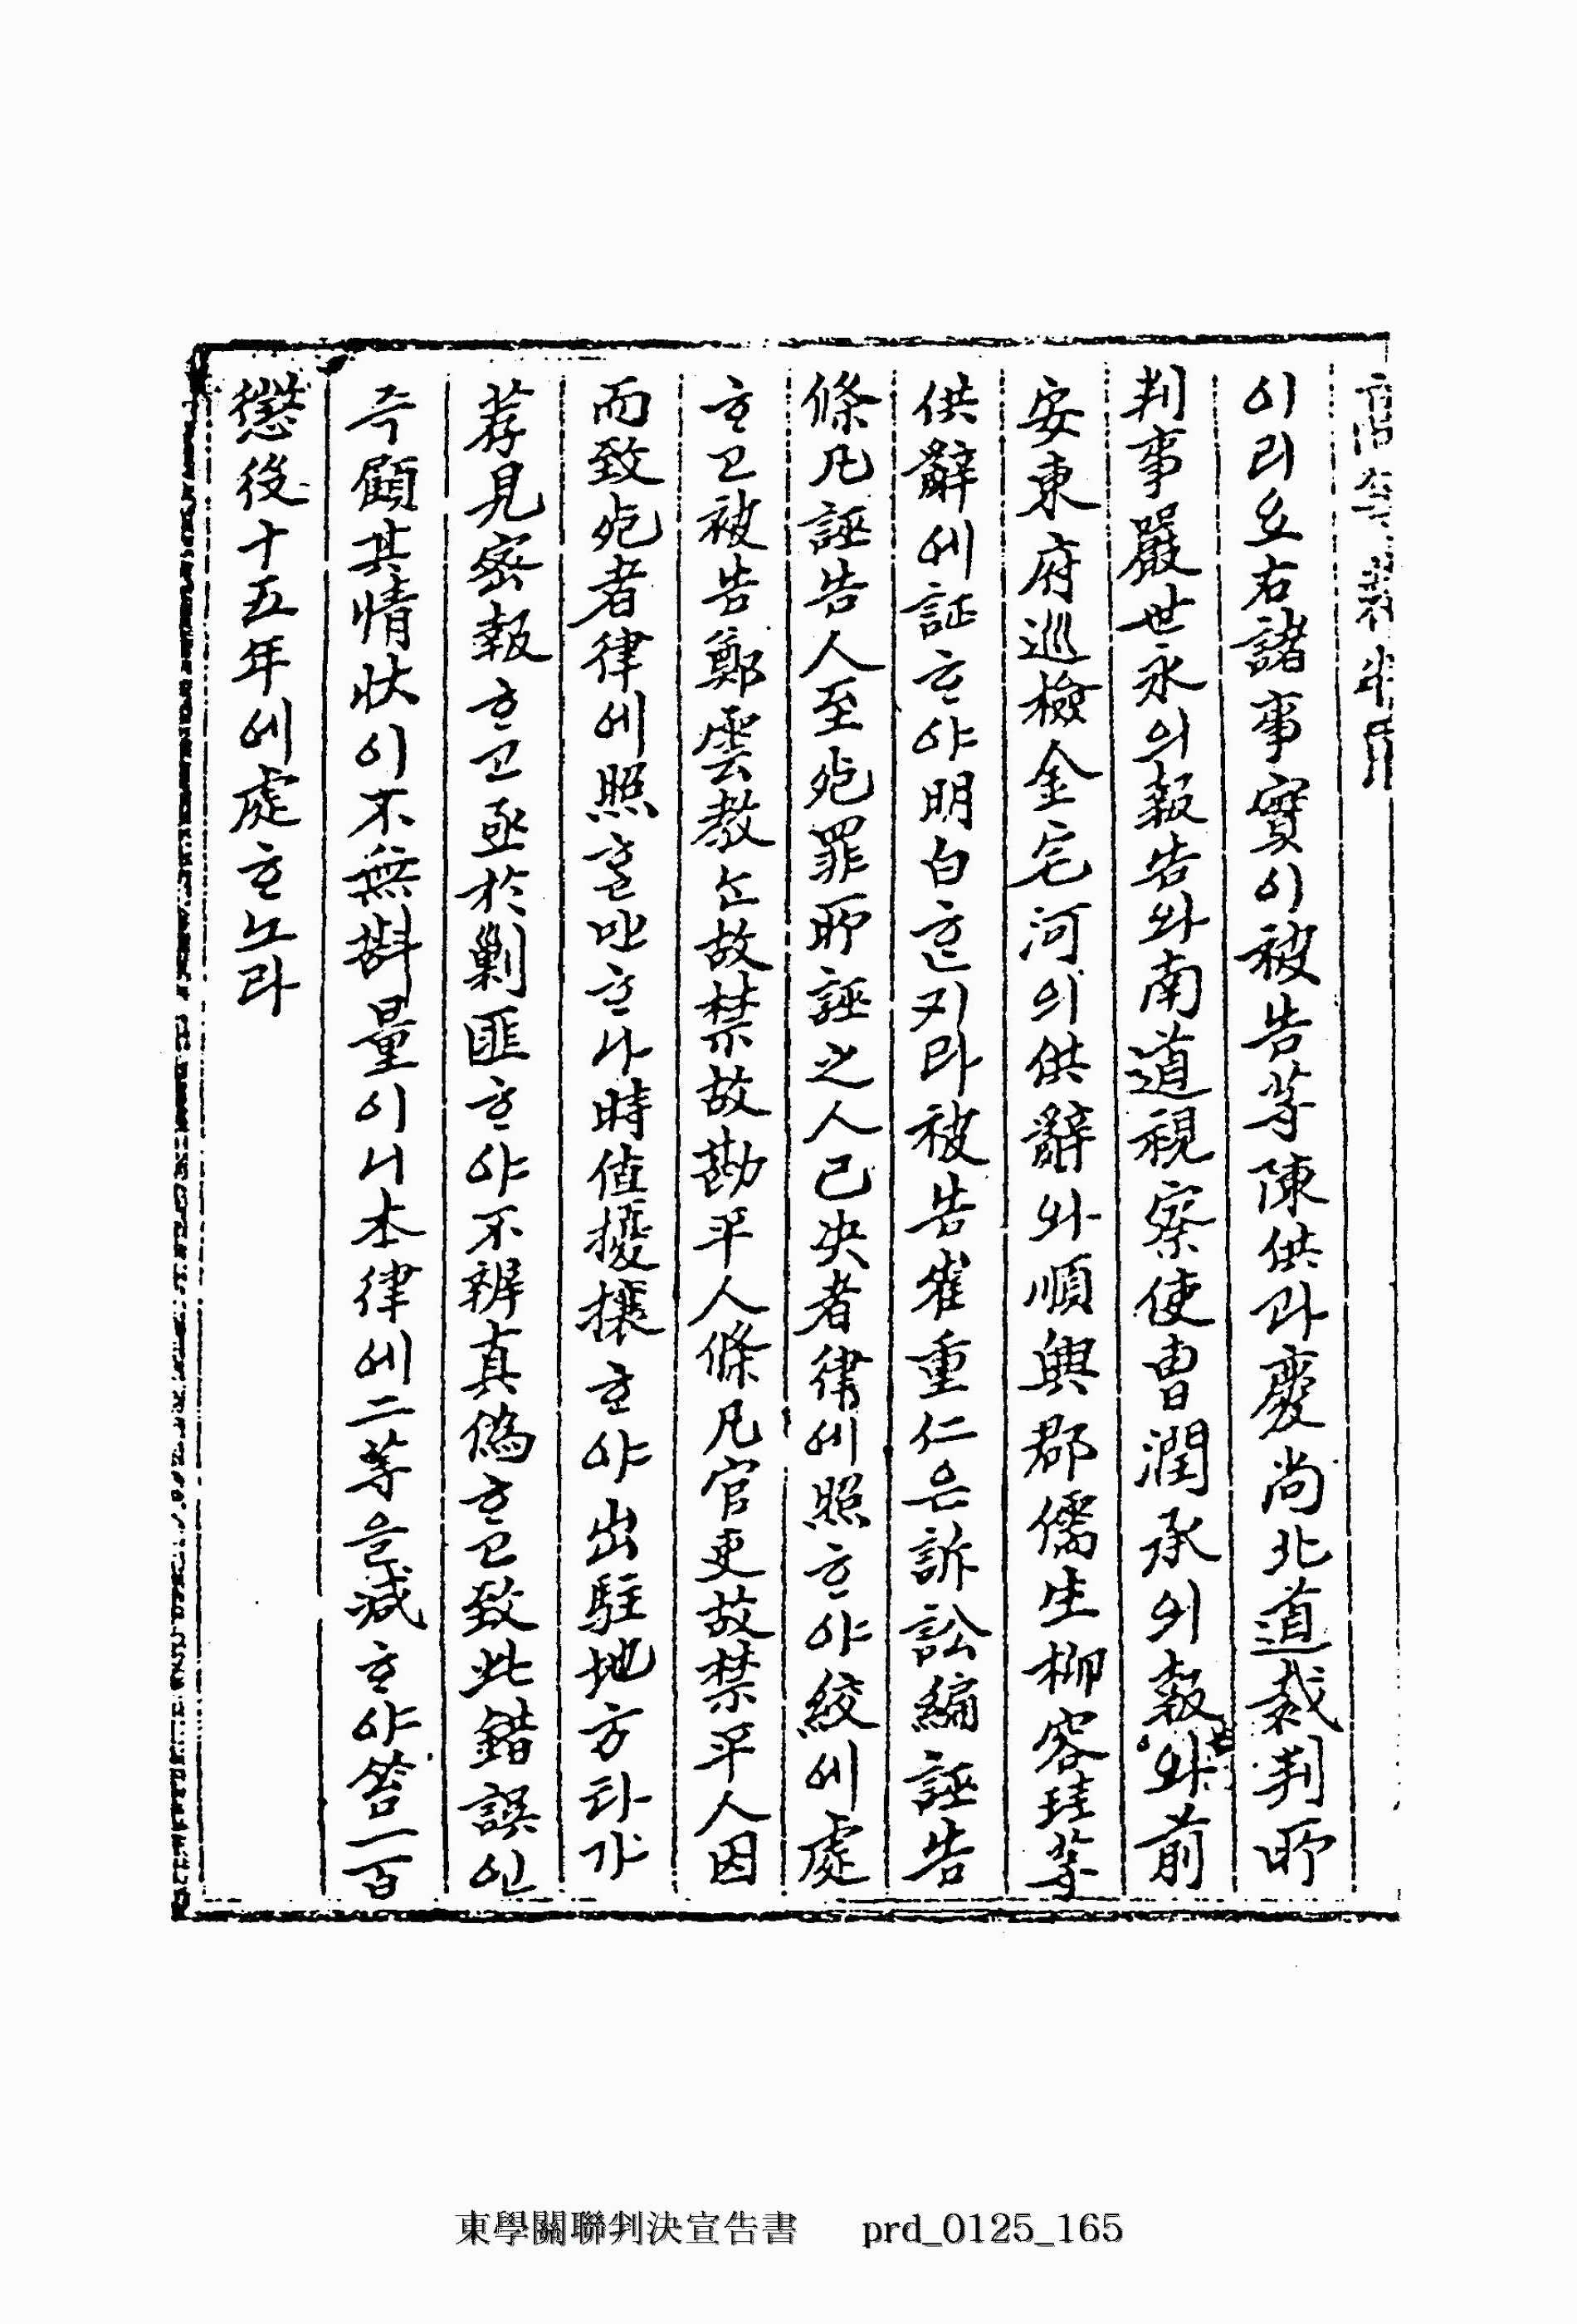 高等裁判所
이라요右諸事實이被告等陳供과慶尙北道裁判所
判事嚴世永의報告와南道視察使曺潤承의報告와前
安東府巡檢金宅河의供辭와順興郡儒生柳寅珪等
供辭에証ᄒᆞ야明白ᄒᆞᆫ지라被告崔重仁은訴訟編誣告
條凡誣告人至死罪所誣之人已决者律에照ᄒᆞ야絞에處
ᄒᆞ고被告鄭雲敎ᄂᆞᆫ故禁故勘平人條凡官吏故禁平人因
而致死者律에照ᄒᆞᆯ만ᄒᆞ나時值擾攘ᄒᆞ야出駐地方타가
荐見密報ᄒᆞ고亟於剿匪ᄒᆞ야不辨真僞ᄒᆞ고致此錯誤인
즉顧其情狀이不無斟量이니本律에二等을減ᄒᆞ야笞一百
懲役十五年에處ᄒᆞ노라
東學關聯判決宣告書 prd_0125_165